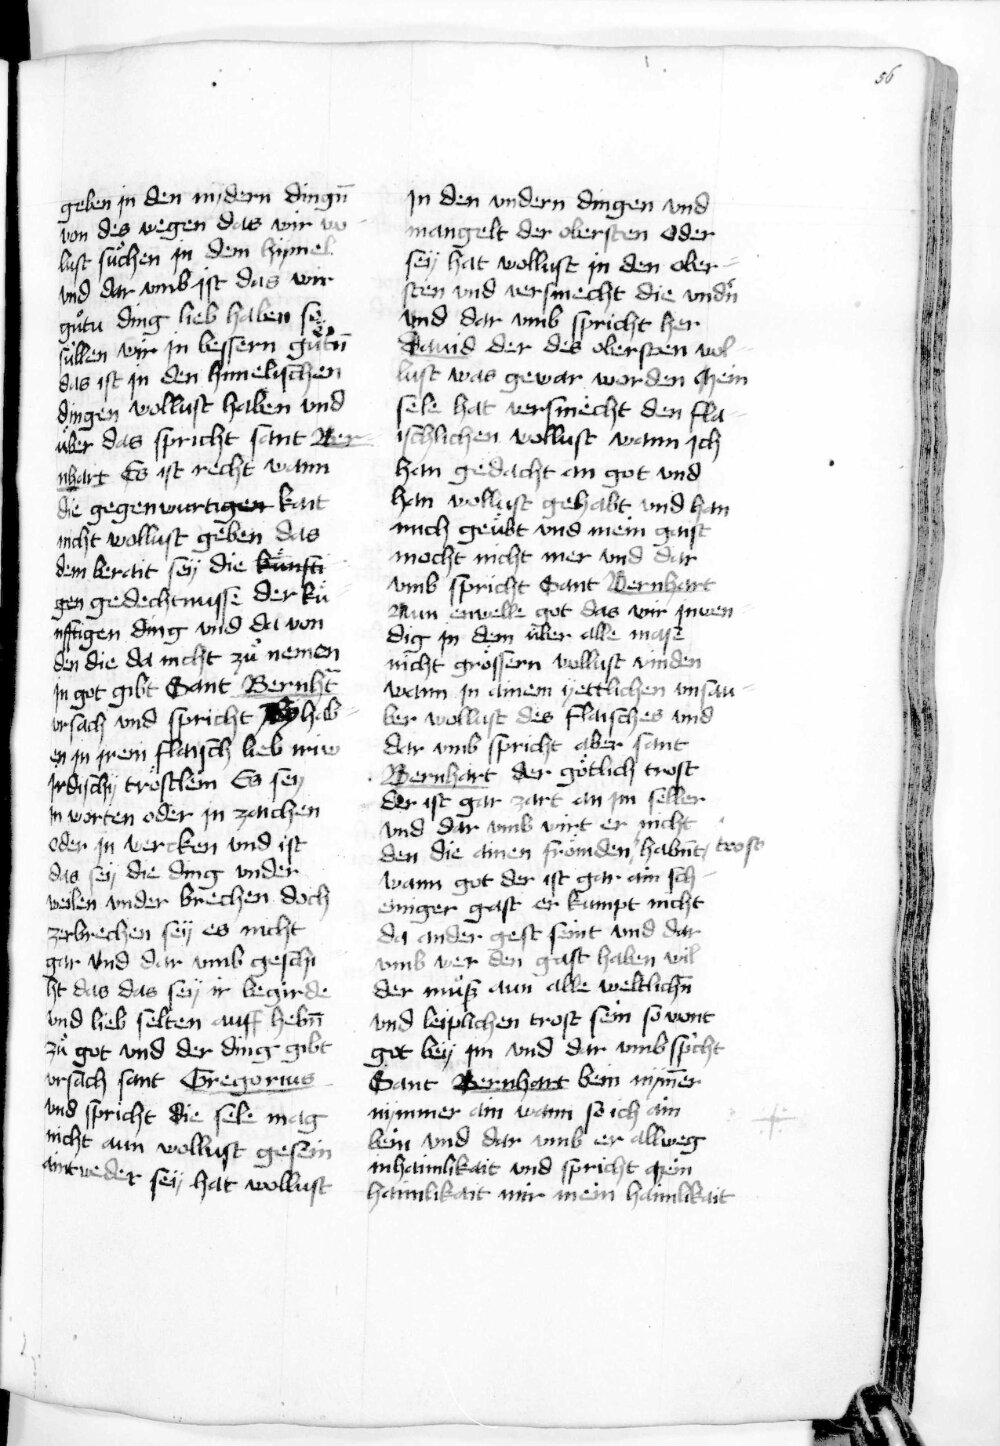 56
geben in den nydern dingn̄
von des wegen das wir wo-
lust sůchen in dem himel
vnd dar vmb ist das wir
gůtu ding lieb haben so
sullen wir in bessern gůtn̄
das ist in den himelischen
dingen wollust haben vnd
über das spricht sant Ber-
nhart Es ist recht wann
die gegenwurtigen kait
nicht wollust geben das
dem berait sey die kunfti
gen gedechtnusse der kü-
nfftigen ding vnd da von
den die da nicht zů nemen
in got gibt Sant Bernht̄
vrsach vnd spricht Sy hab-
en in irem flaisch lieb
irdischy tröstlein Es sey
in worten oder in zaichen
oder in wercken vnd ist
das sey die ding vnder
weilen vnder brechen doch
zerbrechen sey es nicht
gar vnd dar vmb geschi
ht das das sey ir begirde
vnd lieb selten auff hebn̄
zů got vnd der ding gibt
vrsach sant Gregorius
vnd spricht die sele mag
nicht aun wollust gesein
aintweder sey hat wollust
in den vndern dingen vnd
mangelt der obersten Oder
sey hat wollust in den ober-
sten vnd versmecht die vndn̄
vnd dar vmb spricht her
Dauid der des obersten wol-
lust was gewar worden Mein
sele hat versmecht den fla-
ischlichen wollust wann ich
han gedacht an got vnd
han wollust gehabt vnd han
mich geübt vnd mein gaist
mocht nicht mer vnd dar
vmb spricht Sant Bernhart
Nun enwelle got das wir inwen-
dig in dem über alle mase
nicht grössern wollust vinden
wann in ainem yettlichen vnsau-
ber wollust des flaisches vnd
dar vmb spricht aber sant
Bernhart der götlich trost
der ist gar zart an im selber
vnd dar vmb wirt er nicht
den die ainen frömden habn̄t trost
wann got der ist gar ain sch-
einiger gast er kumpt nicht
da ander gest seint vnd dar
vmb wer den gast haben wil
der můsz aun alle weltlichn̄
vnd leiplichen trost sein so wont
got bey im vnd dar vmb sp̄cht
Sant Bernhart bein nym̄er
nymmer ain wann so ich ain
bein vnd dar vmb er allweg
inhaimlikait vnd spricht Mein
haimlikait mir mein haimlikait